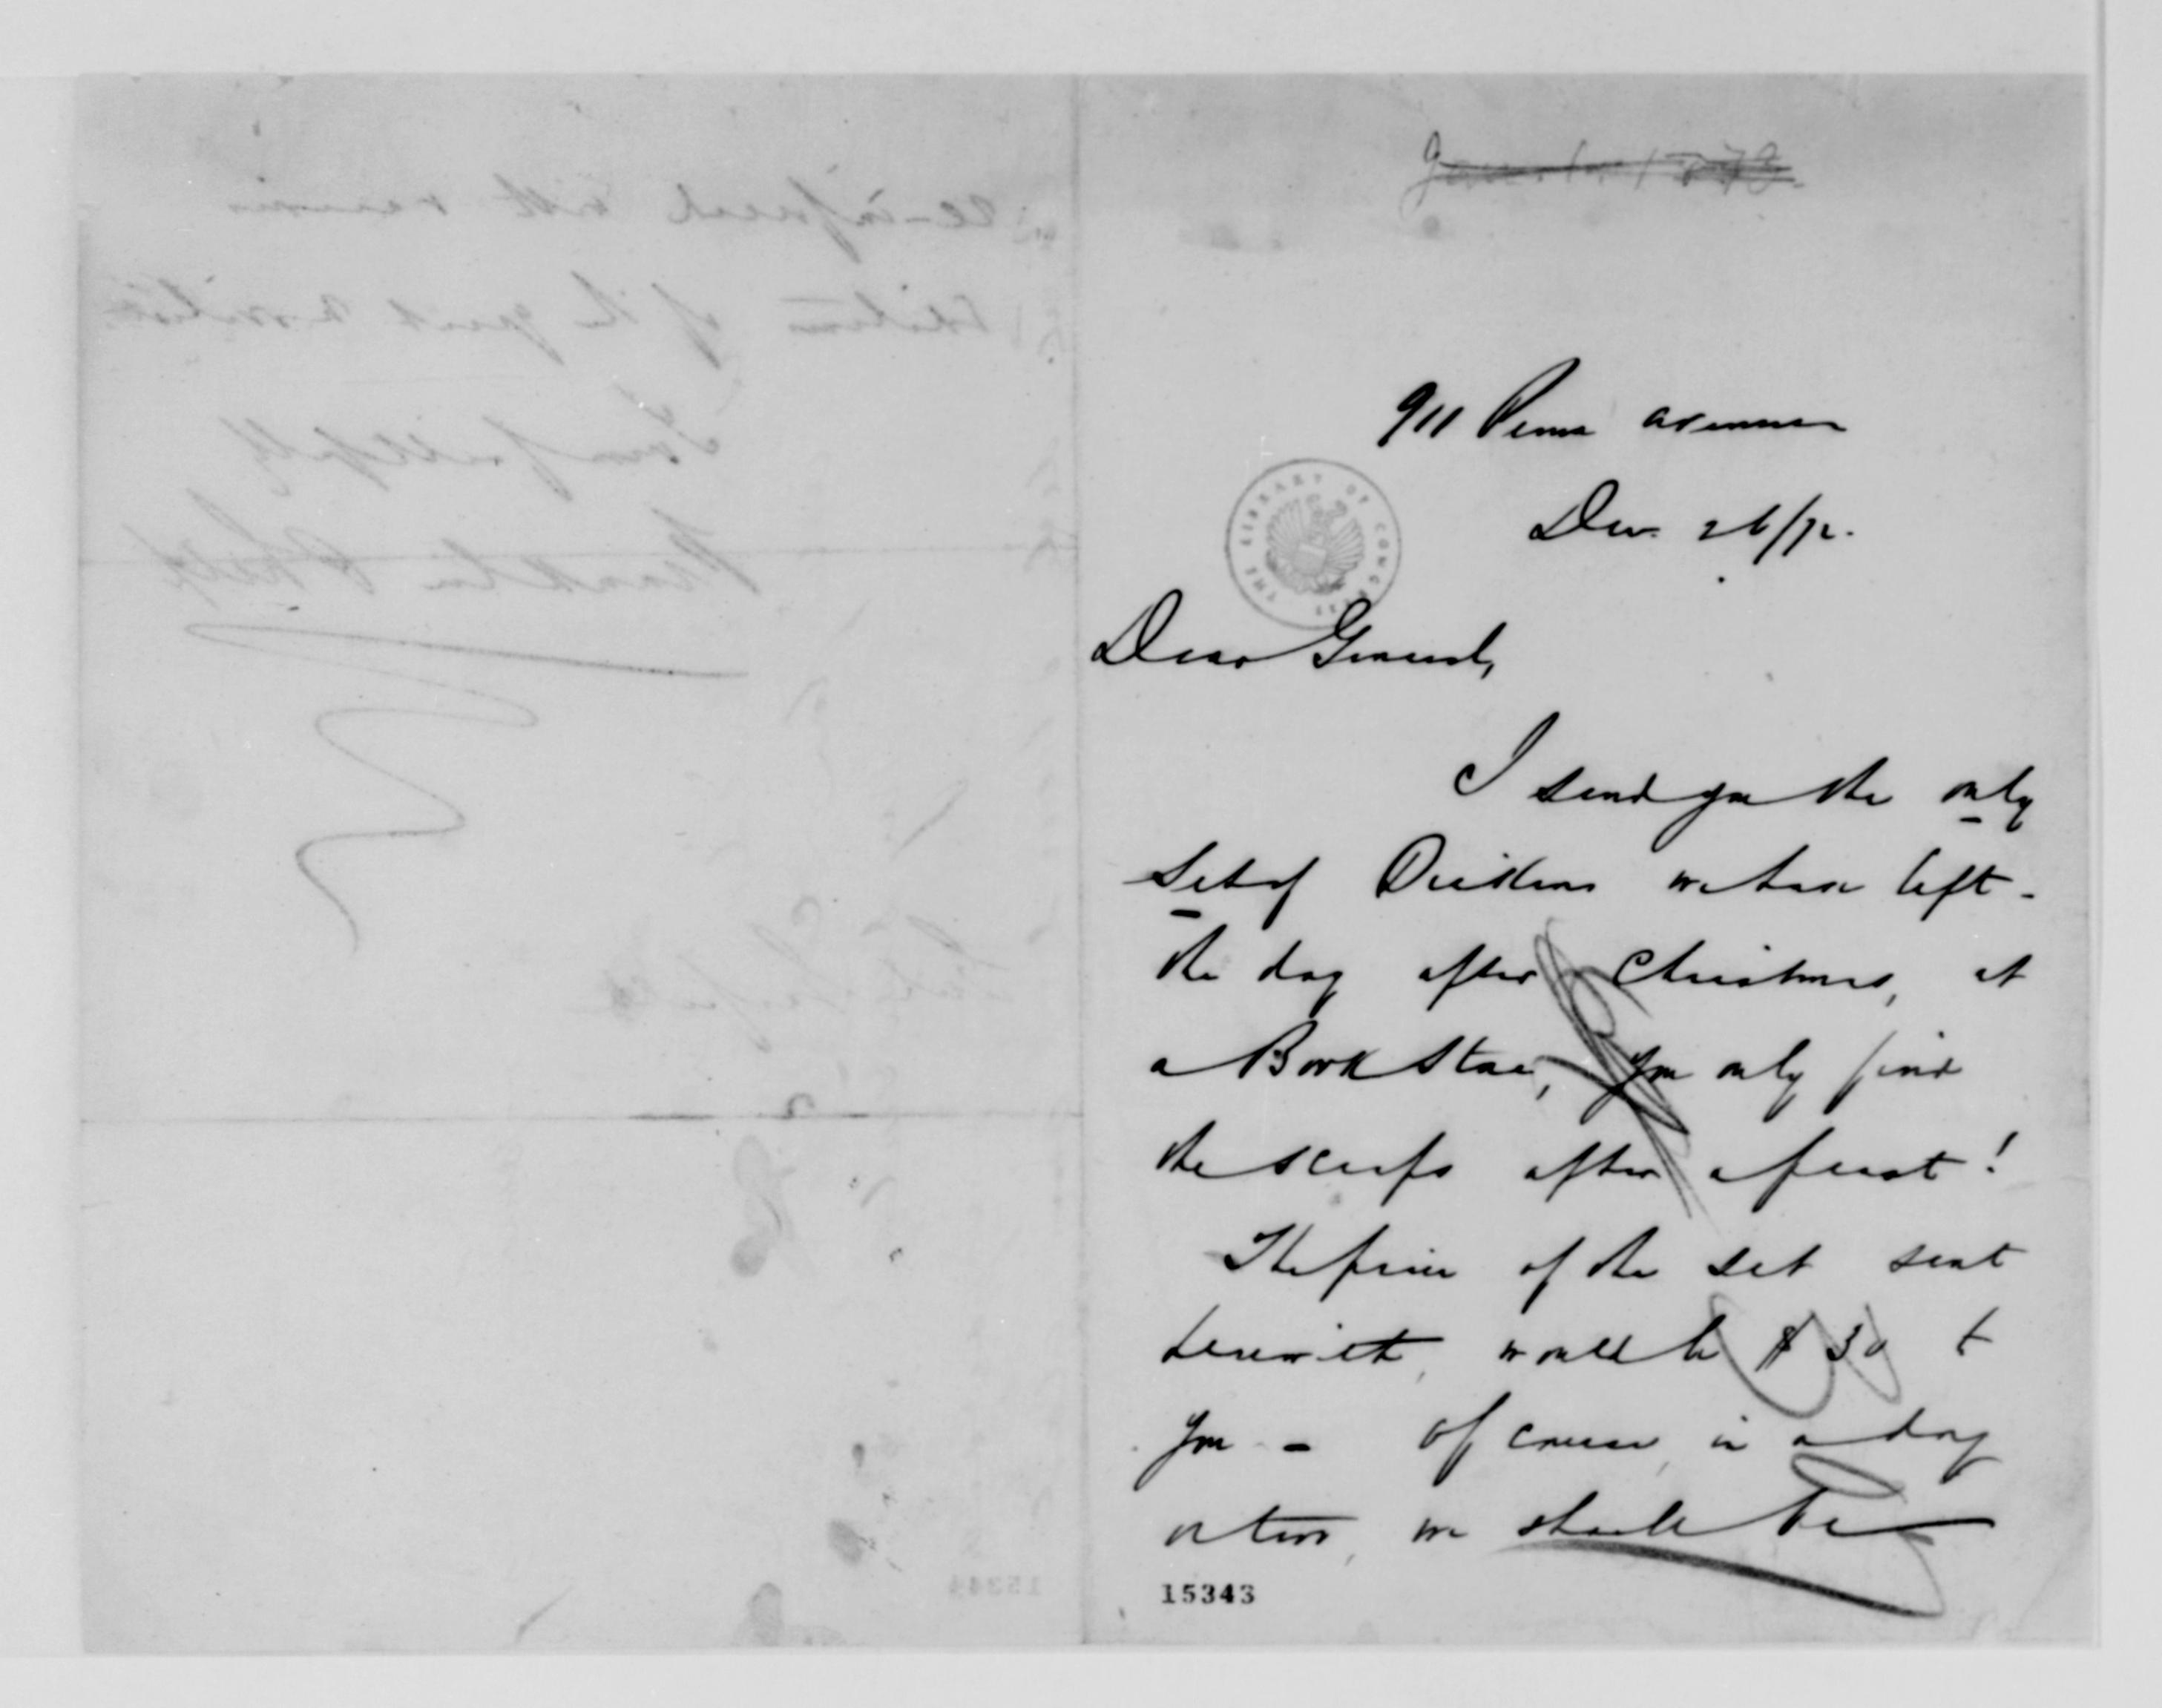 911 Penna Avenue
Dec. 26/72.
THE LIBRARY OF CONGRESS
Dear General,
I send you the only
set of Dickens we have left -
the day after Christmas, at
a Book Store, you only find
the scraps after a feast!
The price of the set sent
herewith, would be $30 to
you - of course, in a day
or two, we shall be
15343
re-inforced with various
Editions of the great novelist
Yours faithfully
Franklin Philp